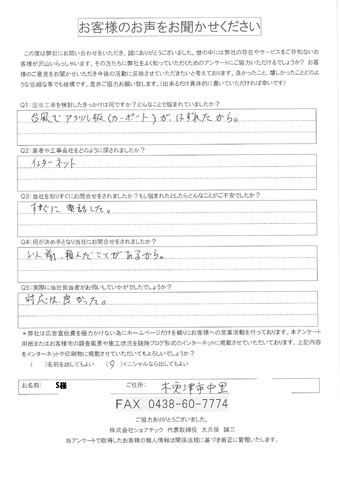 お客様のお声をお聞かせください
この度は弊社にお問い合わせをいただき、誠にありがとうございました。世の中には弊社の存在やサービスをご存知ないお
客様が沢山いらっしゃいます。その方たちに弊社をよく知っていただくためのアンケートにご協力いただけるでしょうか？お客
様のご意見をお聞かせいただき今後の活動に反映させていきたいと考えております。良かったこと、嬉しかったことどのよ
うな些細な事でも結構です。是非ご協力お願い致します。（出来るだけ具体的に書いていただければ幸いです）
Q1：屋根工事を検討したきっかけは何ですか？どんなことで悩まれていましたか？
台風でアクリル板(カーポート)がはずれたから。
Q2：業者や工事会社をどのように探されましたか？
インターネット
Q3：当社を知りすぐにお問合せをされましたか？もし悩まれたとしたらどんなことがご不安でしたか？
すぐに電話した。
Q4：何が決め手となり当社にお問合せをされましたか？
以前、頼んだことがあるから。
Q5：実際に当社担当者がお伺いしていかがでしたでしょうか？
対応は良かった。
＊弊社は広告宣伝費を極力かけない為にホームページだけを頼りにお客様への営業活動を行っております。本アンケート
用紙またはお客様宅の調査風景や施工状況を随時ブログ形式のインターネットに掲載させていただいております。上記内容
をインターネットや印刷物に掲載させていただいてもよろしいでしょうか？
（　）名前を出してもよい　（　）イニシャルなら出してもよい
お名前：　S様　ご住所：　木更津市中里
FAX 0438-60-7774
ご協力ありがとうございました。
株式会社シェアテック 代表取締役 大久保 誠二
当アンケートで取得したお客様の個人情報は関係法規に基づき厳正に管理いたします。